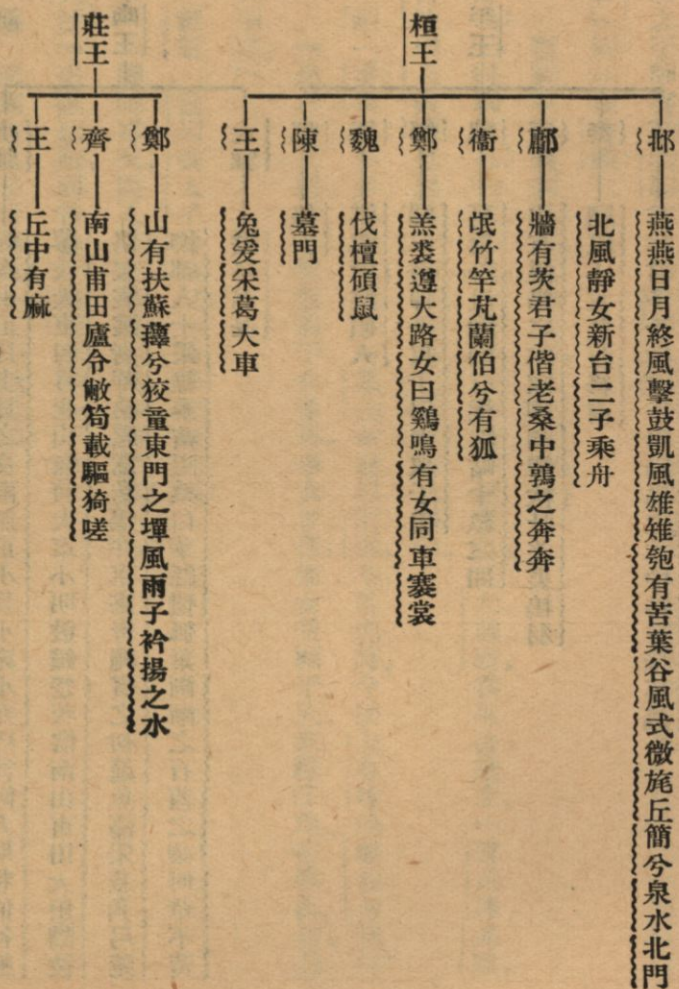 桓王
邶 燕燕日月終風擊鼓凱風雄雉匏有苦葉谷風式微旄丘簡兮泉水北門
北風靜女新台二子乘舟
鄘 牆有茨君子偕老桑中鶉之奔奔
衞 氓竹竿芄蘭伯兮有狐
鄭 羔裘遵大路女曰鷄鳴有女同車褰裳
魏 伐檀碩鼠
陳 墓門
王 兔爰采葛大車
莊王
鄭 山有扶蘇蘀兮狡童東門之墠風雨子衿揚之水
齊 南山甫田廬令敝笱載驅猗嗟
王 丘中有麻